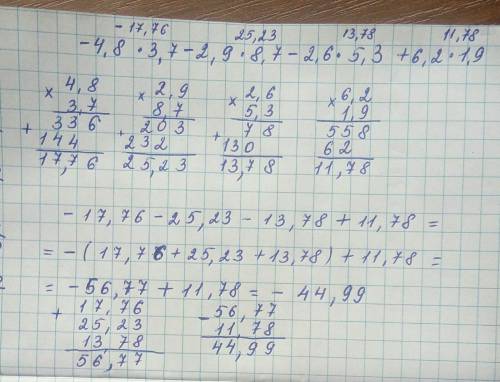 -17,76 25,23 13,78 11,78
-4,8 · 3,7 - 2,9 · 8,7 - 2,6 · 5,3 + 6,2 · 1,9
× 4,8 × 2,9 × 2,6 × 6,2
3,7 8,7 5,3 1,9
+ 336 + 203 + 78 558
144 232 130 62
17,76 25,23 13,78 11,78
-17,76 - 25,23 - 13,78 + 11,78 =
= -(17,76 + 25,23 + 13,78) + 11,78 =
= -56,77 + 11,78 = - 44,99
+ 17,76 - 56,77
25,23 11,78
13,78 44,99
56,77